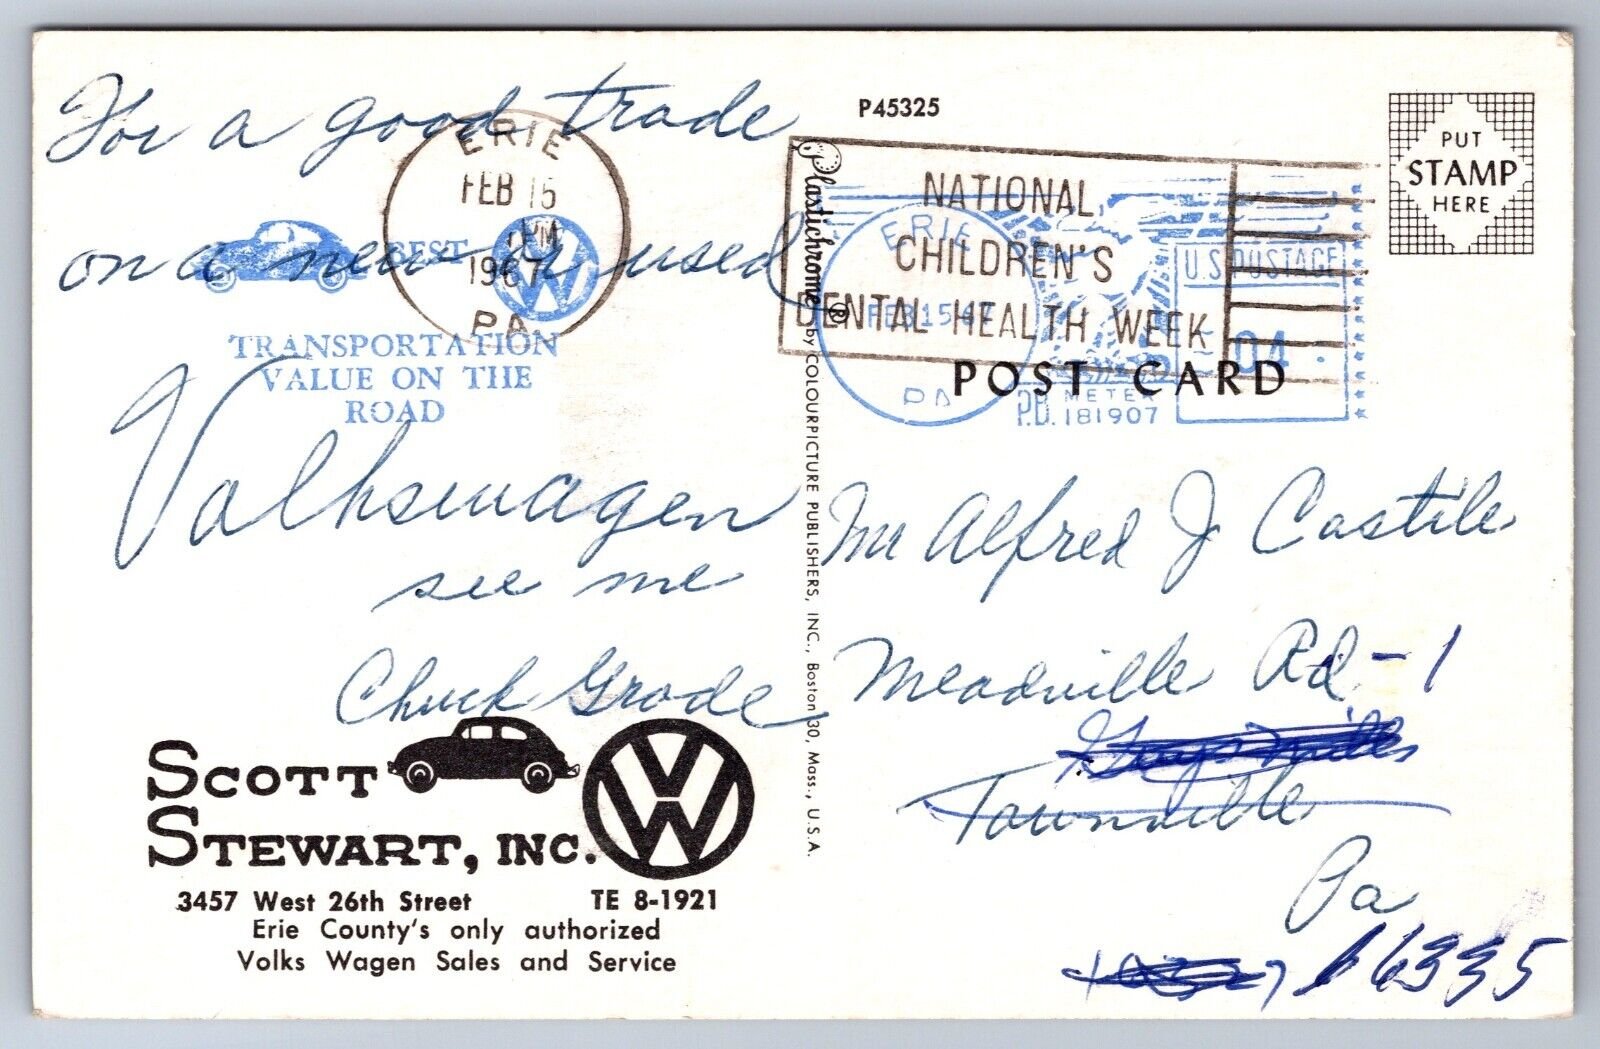 For a good trade
on a new or used
Volkswagen
see me
Chuck Grode
BEST
TRANSPORTATION
VALUE ON THE
ROAD
ERIE
FEB 15
PM
1967
PA
SCOTT
STEWART, INC.
3457 West 26th Street TE 8-1921
Erie County's only authorized
Volks Wagen Sales and Service
Plastichrome® by COLOURPICTURE PUBLISHERS, INC., Boston 30, Mass., U.S.A.
P45325
NATIONAL
CHILDREN'S
DENTAL HEALTH WEEK
ERIE
FEB 15 '67
PA
U.S. POSTAGE
04
P.B. METER
181907
PUT
STAMP
HERE
POST CARD
Mr Alfred J Castile
Meadville Rd-1
Townville
Pa
16335